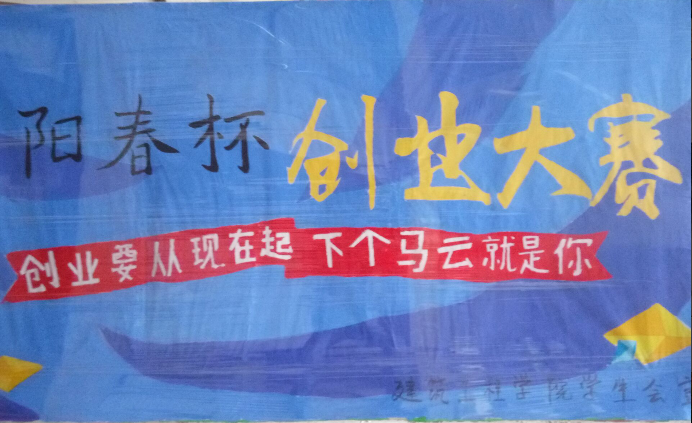 阳春杯 创业大赛
创业要从现在起 下个马云就是你
建筑工程学院学生会宣